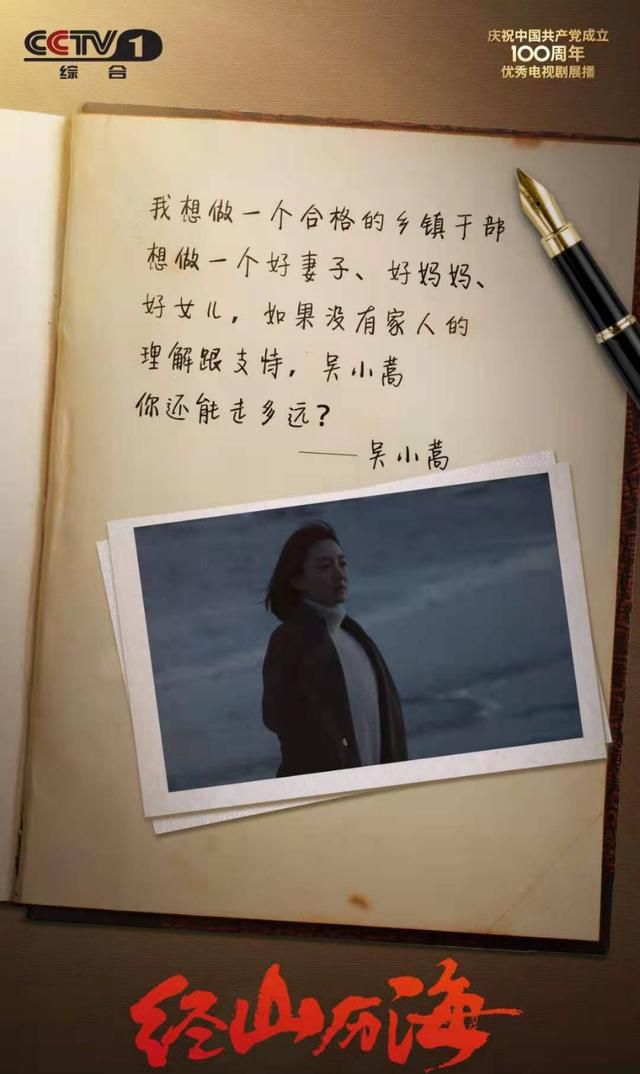 CCTV 1
综合
庆祝中国共产党成立
100周年
优秀电视剧展播
我想做一个合格的乡镇干部
想做一个好妻子、好妈妈、
好女儿，如果没有家人的
理解跟支持，吴小蒿
你还能走多远？
——吴小蒿
经山历海